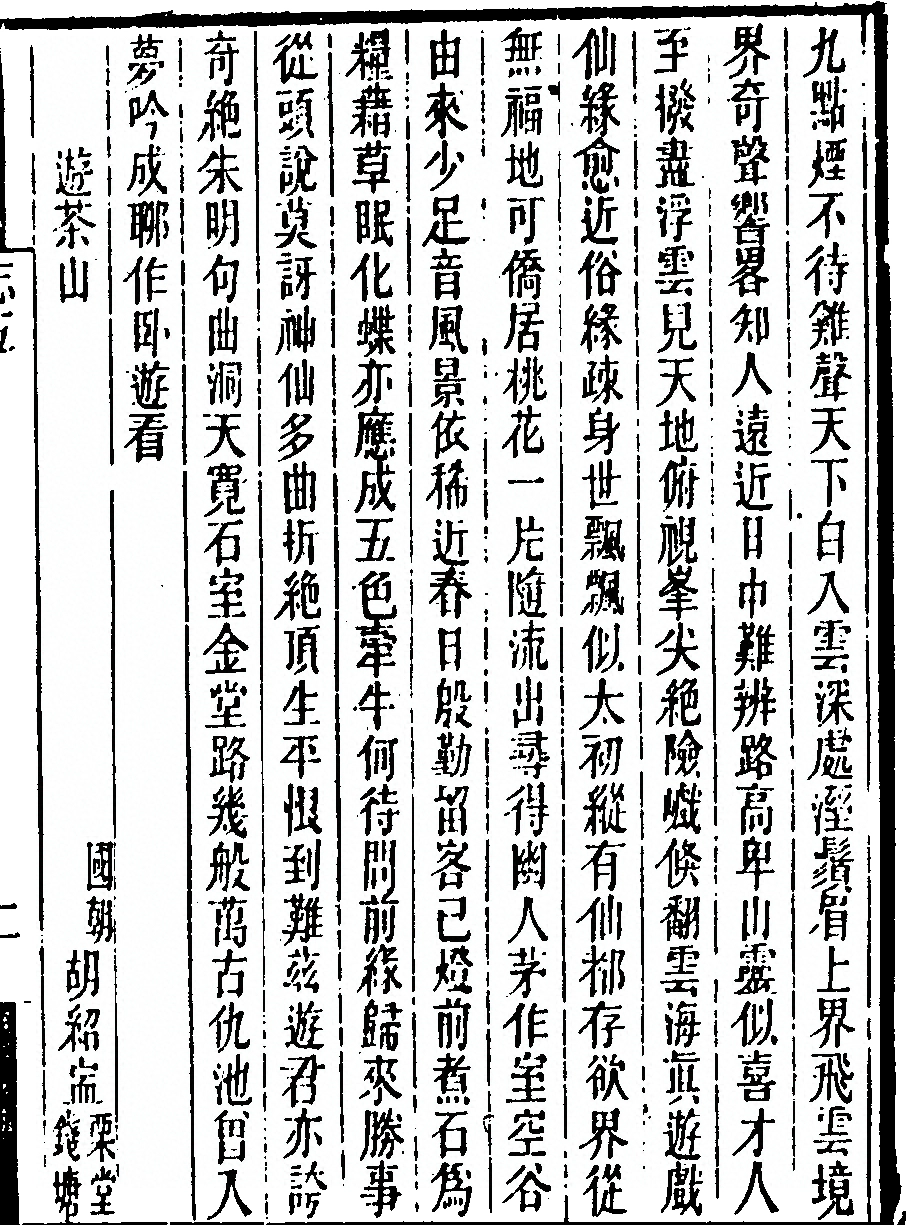 九點煙不待雞聲天下白入雲深處溼鬚眉上界飛雲境
界奇聲響畧知人遠近日巾難辨路高卑山靈似喜才人
至撥盡浮雲見天地俯視峯尖絶險巇倏翻雲海眞遊戲
仙緣愈近俗緣疎身世飄飄似太初縱有仙都存欲界從
無福地可僑居桃花一片隨流出尋得幽人茅作室空谷
由來少足音風景依稀近春日殷勤留客已燈前煮石爲
糧藉草眠化蝶亦應成五色牽牛何待問前緣歸來勝事
從頭說莫訝神仙多曲折絶頂生平恨到難茲遊君亦誇
奇絶朱明句曲洞天寬石室金堂路幾般萬古仇池曾入
夢吟成聊作卧遊看
遊茶山
國朝胡紹
栗堂
錢塘